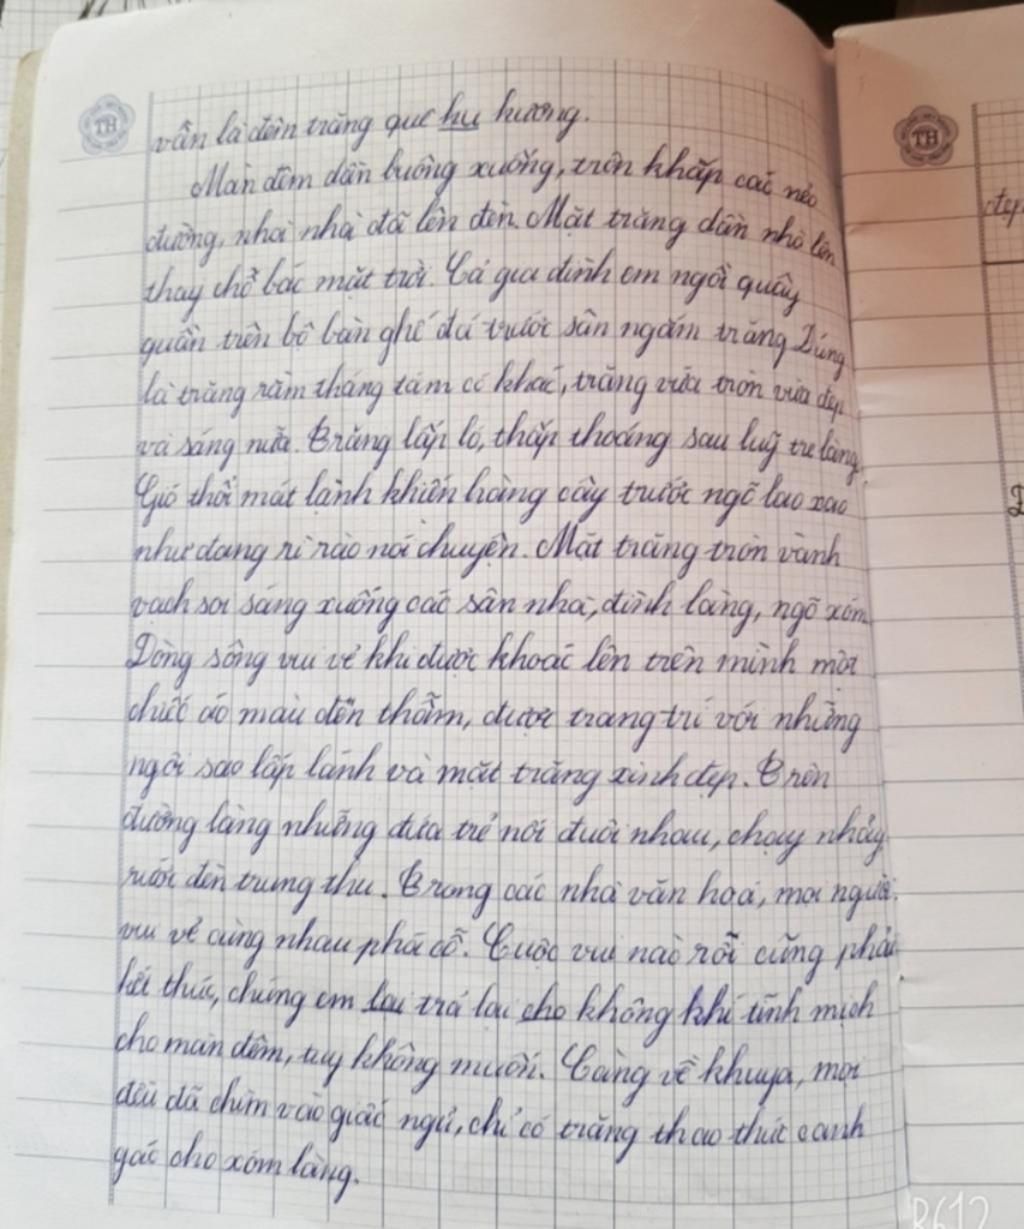 vẫn là đêm trăng quê hu hương.
Màn đêm dần buông xuống, trên khắp các nẻo
đường, nhà nhà đã lên đèn. Mặt trăng dần nhô lên
thay chỗ bác mặt trời. Cả gia đình em ngồi quây
quần trên bộ bàn ghế đá trước sân ngắm trăng Đúng
là trăng rằm tháng tám có khác, trăng vừa tròn vừa đẹp
và sáng nữa. Trăng lấp ló, thấp thoáng sau luỹ tre làng.
Gió thổi mát lành khiến hàng cây trước ngõ lao xao
như đang rì rào nói chuyện. Mặt trăng tròn vành
vạch soi sáng xuống các sân nhà, đình làng, ngõ xóm
Dòng sông vui vẻ khi được khoác lên trên mình một
chiếc áo màu đen thẫm, được trang trí với những
ngôi sao lấp lánh và mặt trăng xinh đẹp. Trên
đường làng những đứa trẻ nối đuôi nhau, chạy nhảy
rước đèn trung thu. Trong các nhà văn hoá, mọi người
vui vẻ cùng nhau phá cỗ. Cuộc vui nào rồi cũng phải
kết thúc, chúng em lại trả lại cho không khí tĩnh mịch
cho màn đêm, tuy không muốn. Càng về khuya, mọi
đều đã chìm vào giấc ngủ, chỉ có trăng thao thức canh
gác cho xóm làng.
TH
TH
đẹp